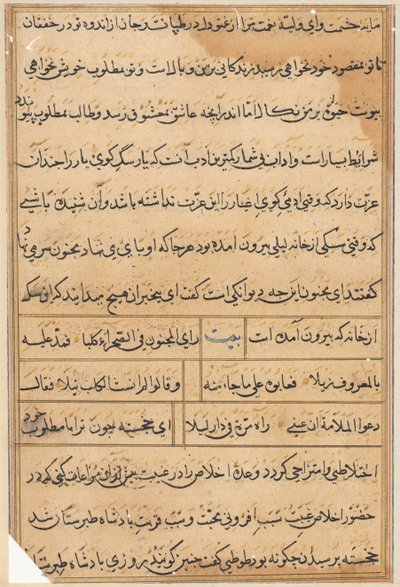 خشیت وای ولیه نعمت مرا از غم تو دل در طپانست و جان از اندوه تو در خفقان
تا تو بمقصود خود نخواهی رسید زندگانی بر من وبال است و تو بمطلوب خویش نخواهی
پیوست حیوة بر من نکال اما اندر آنچه عاشق بمعشوق رسد و طالب بمطلوب پیوندد
شرایط بسیار است و اداب بی شمار کمترین ادب آنست که یار سگ کوی یار را چندان
عزت دارد که وقتی ادمی کوی اغیار را این عزت نداشته باشد و آن شنیده باشی
که وقتی سگی از خانه لیلی بیرون آمده بود هر جا که او پای می نهاد مجنون سر می نهاد
گفتند ای مجنون این چه دیوانگی است گفت ای بیخبران هیچ میدانید که این سگ
از خانه که بیرون آمده است بیت رای المجنون فی الصحراء کلبا فمد علیه
بالمعروف ذیلا فعابوه علی ما جاء منه وقالوا الکلب نیلا فقالت
دعوا الملامة ان عینی راه مرة فی دار لیلا ای خجسته چون ترا با مطلوب خود
اختلاطی و امتزاجی گردد وعده اخلاص را در غیبت بیش از آن مراعات کنی که در
حضور اخلاص غیبت سبب افزونی محبت و سبب قربت پادشاه طبرستان شد
خجسته پرسید آن چگونه بود طوطی گفت چنین گویند روزی پادشاه طبرستان